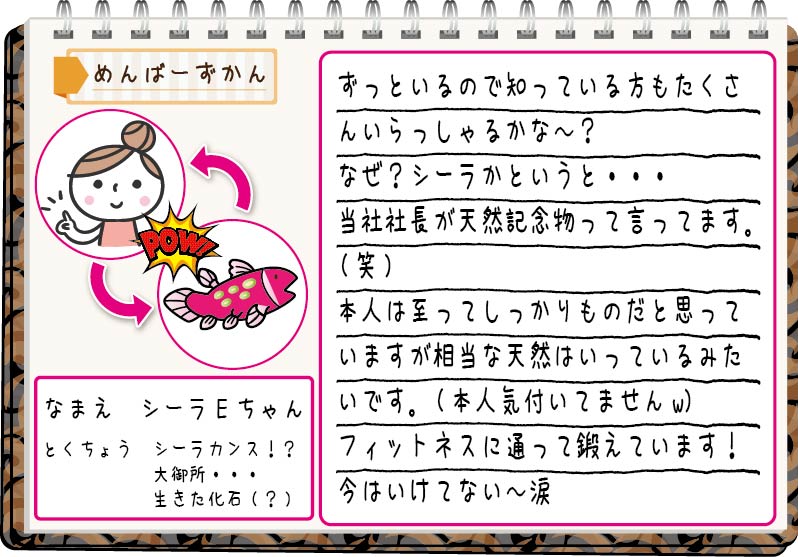 めんばーずかん
POW!
なまえ シーラEちゃん
とくちょう シーラカンス!?
大御所・・・
生きた化石(?)
ずっといるので知っている方もたくさ
んいらっしゃるかな~?
なぜ?シーラかというと・・・
当社社長が天然記念物って言ってます。
(笑)
本人は至ってしっかりものだと思って
いますが相当な天然はいっているみた
いです。(本人気付いてませんw)
フィットネスに通って鍛えています!
今はいけてない~涙